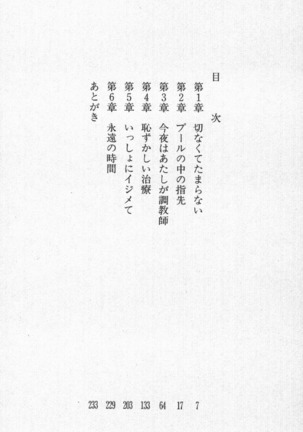 目次
第1章 切なくてたまらない 7
第2章 プールの中の指先 17
第3章 今夜はあたしが調教師 64
第4章 恥ずかしい治療 133
第5章 いっしょにイジメて 203
第6章 永遠の時間 229
あとがき 233